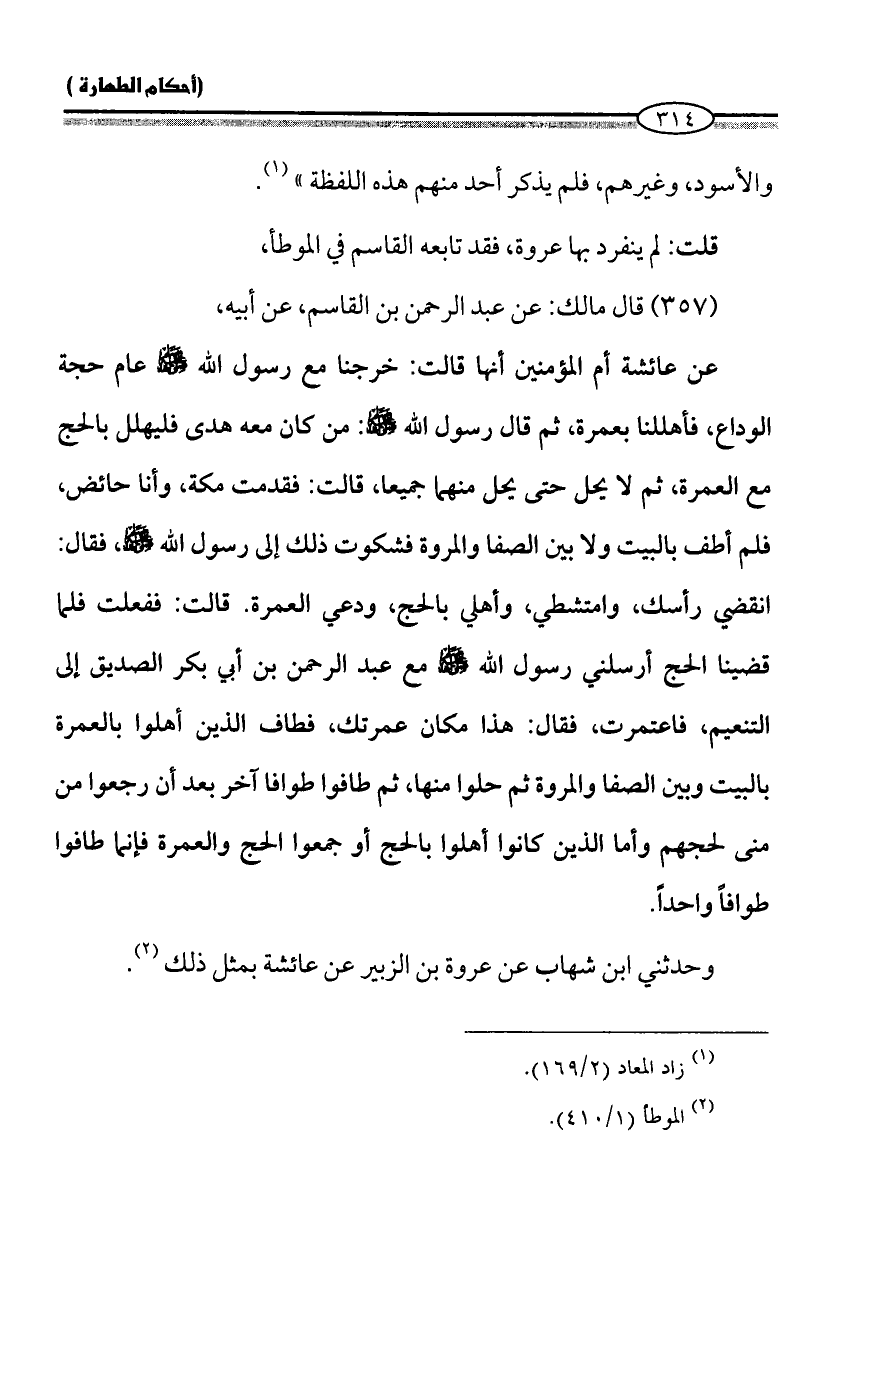 (أحكام الطهارة )
٣١٤
والأسود، وغيرهم، فلم يذكر أحد منهم هذه اللفظة » (١).
قلت: لم ينفرد بها عروة، فقد تابعه القاسم في الموطأ،
(٣٥٧) قال مالك: عن عبد الرحمن بن القاسم، عن أبيه،
عن عائشة أم المؤمنين أنها قالت: خرجنا مع رسول الله ﷺ عام حجة
الوداع، فأهللنا بعمرة، ثم قال رسول الله ﷺ: من كان معه هدى فليهلل بالحج
مع العمرة، ثم لا يحل حتى يحل منهما جميعا، قالت: فقدمت مكة، وأنا حائض،
فلم أطف بالبيت ولا بين الصفا والمروة فشكوت ذلك إلى رسول الله ﷺ، فقال:
انقضي رأسك، وامتشطي، وأهلي بالحج، ودعي العمرة. قالت: ففعلت فلما
قضينا الحج أرسلني رسول الله ﷺ مع عبد الرحمن بن أبي بكر الصديق إلى
التنعيم، فاعتمرت، فقال: هذا مكان عمرتك، فطاف الذين أهلوا بالعمرة
بالبيت وبين الصفا والمروة ثم حلوا منها، ثم طافوا طوافا آخر بعد أن رجعوا من
منى لحجهم وأما الذين كانوا أهلوا بالحج أو جمعوا الحج والعمرة فإنما طافوا
طوافاً واحداً.
وحدثني ابن شهاب عن عروة بن الزبير عن عائشة بمثل ذلك (٢).
(١) زاد المعاد (١٦٩/٢).
(٢) الموطأ (٤١٠/١).